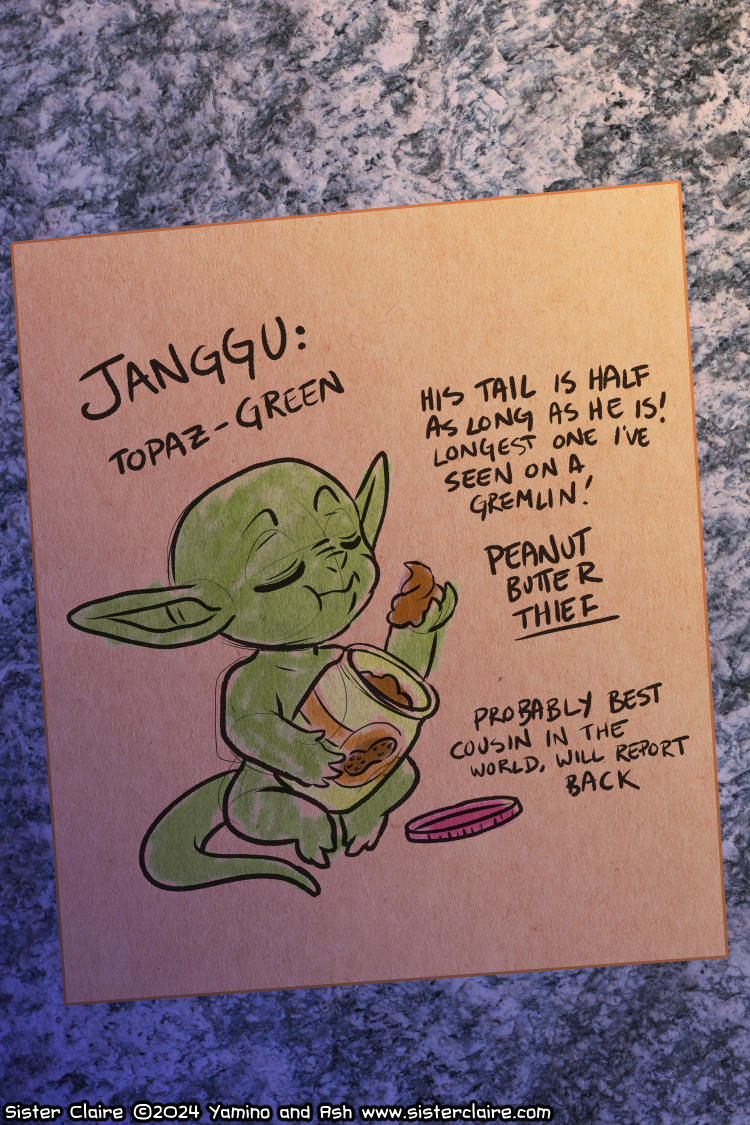 JANGGU:
TOPAZ-GREEN
HIS TAIL IS HALF
AS LONG AS HE IS!
LONGEST ONE I'VE
SEEN ON A
GREMLIN!
PEANUT
BUTTER
THIEF
PROBABLY BEST
COUSIN IN THE
WORLD, WILL REPORT
BACK
Sister Claire ©2024 Yamino and Ash www.sisterclaire.com